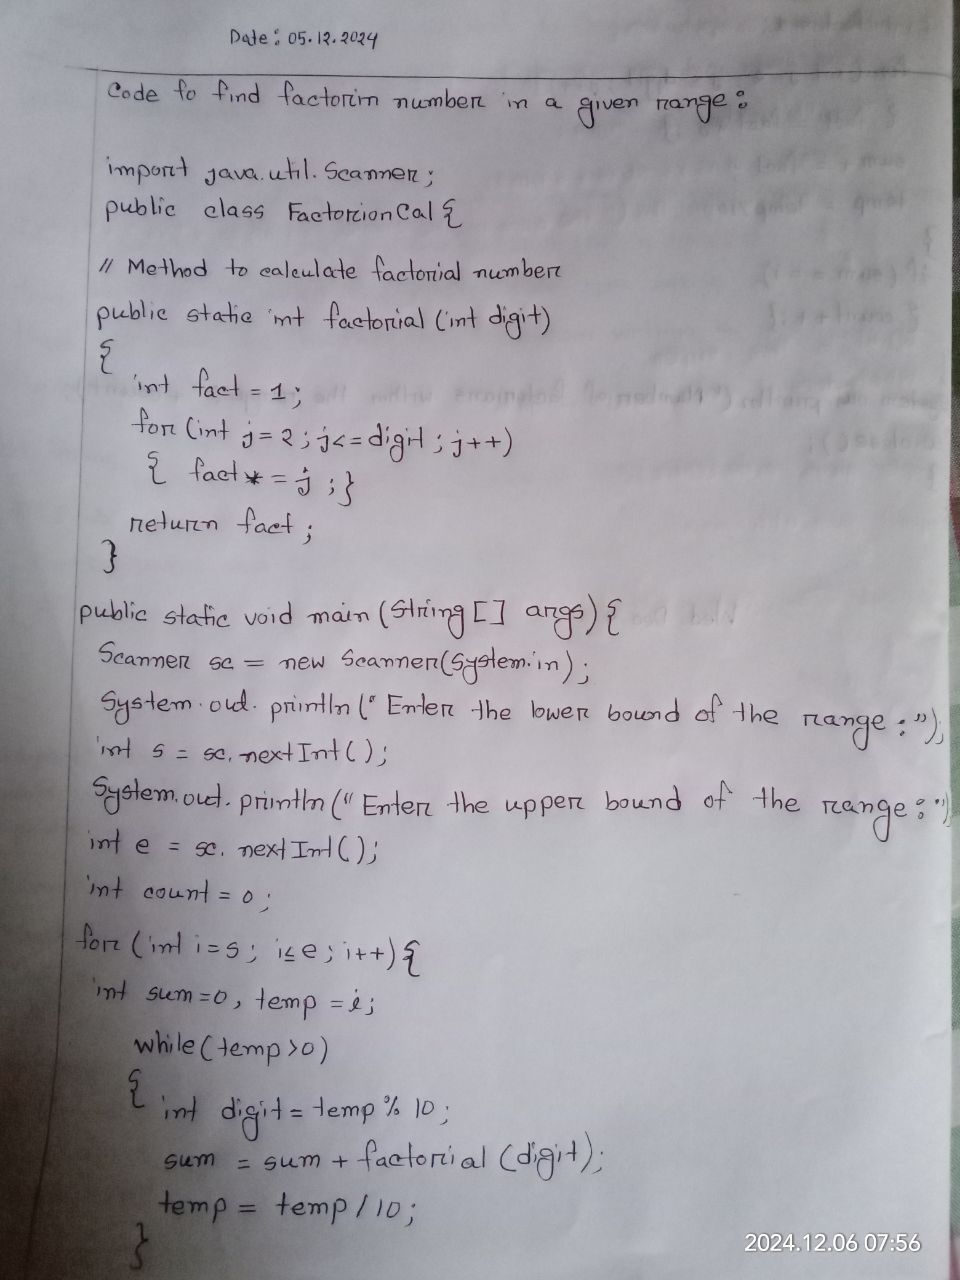 Date: 05.12.2024
Code to find factorin number in a given range:
import java.util.Scanner;
public class FactorionCal {
// Method to calculate factorial number
public static int factorial (int digit)
{
int fact = 1;
for (int j=2; j<=digit; j++)
{ fact * = j ; }
return fact ;
}
public static void main (String [] args) {
Scanner sc = new Scanner(System.in);
System.out.println (" Enter the lower bound of the range : ");
int s = sc.nextInt();
System.out.println (" Enter the upper bound of the range : ")
int e = sc. nextInt();
int count = 0;
for (int i=s; i≤e; i++) {
int sum=0, temp = i;
while (temp >0)
{
int digit = temp % 10;
sum = sum + factorial (digit);
temp = temp / 10;
}
2024.12.06 07:56